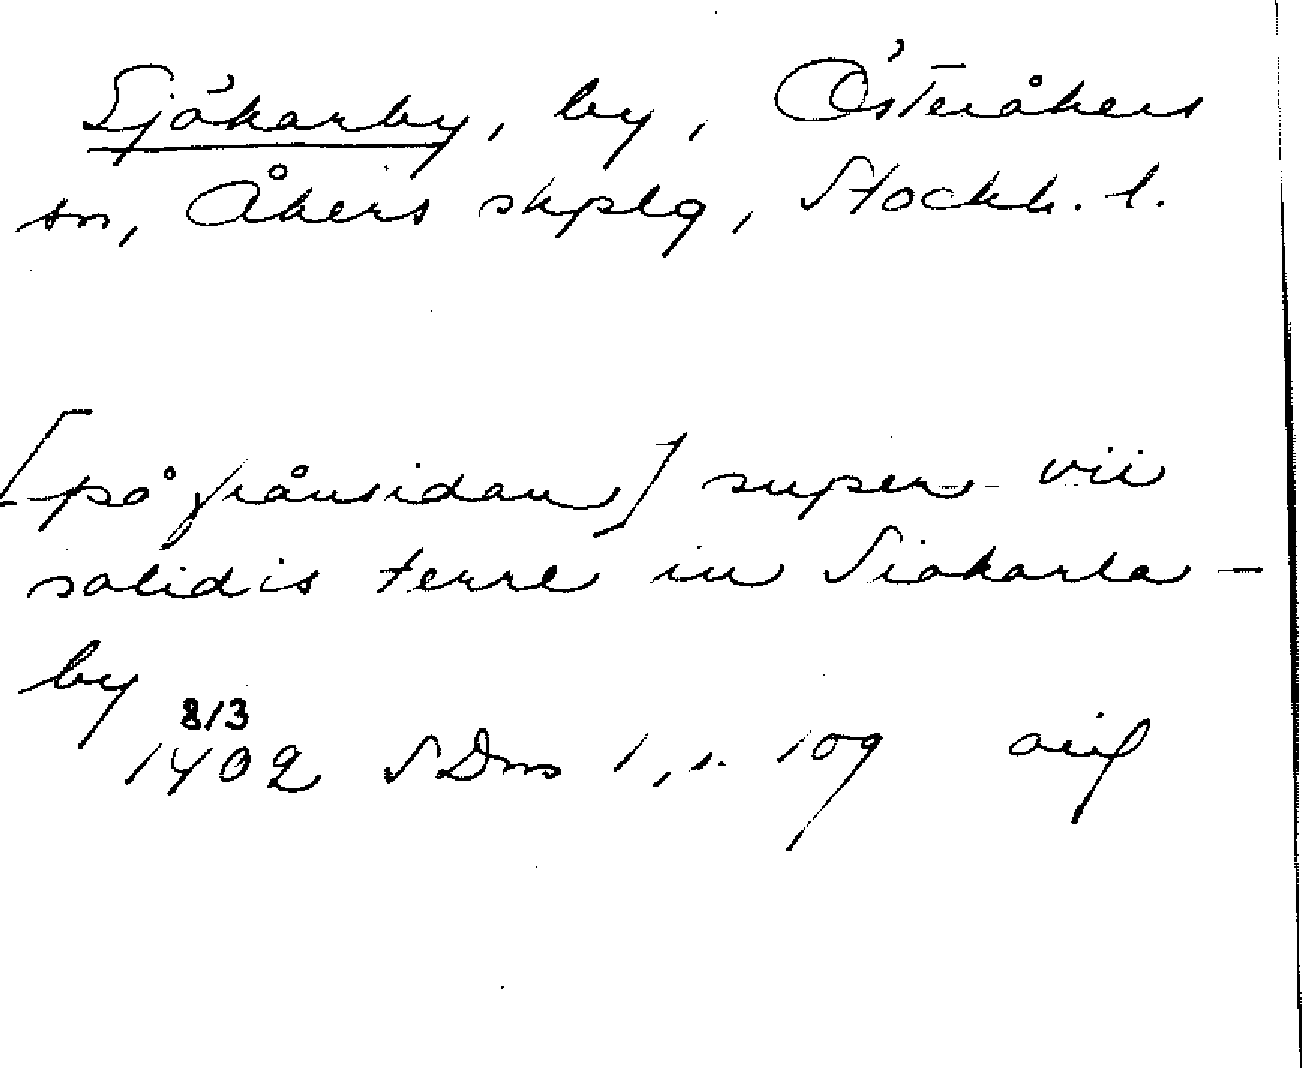 Sjökarby, by, Österåkers
sn, Åkers skplg, Stockh. l.
[på frånsidan] super vii
solidis terre in Siökarla-
by
8/3
1402 SDns 1, s. 109 orig